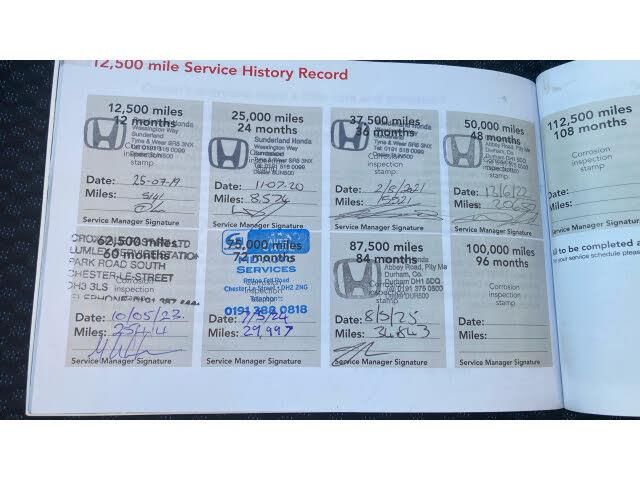 12,500 mile Service History Record
12,500 miles
12 months
Honda
Wessington Way
Sunderland
Tyne & Wear SR5 3NX
Corrosion
inspection
stamp
Date: 25-07-19
Miles: 5141
Service Manager Signature
25,000 miles
24 months
Sunderland Honda
Wessington Way
Sunderland
Tyne & Wear SR5 3NX
Tel: 0191 516 0090
inspection
Dealer SUN500
stamp
Date: 11.02.20
Miles: 8,574
Service Manager Signature
37,500 miles
36 months
Honda
Wessington Way
Tyne & Wear SR5 3NX
Tel: 0191 516 0090
inspection
Dealer SUN500
stamp
Date: 2/5/2021
Miles: 15521
Service Manager Signature
50,000 miles
48 months
Abbey Road, Pity Me
Durham DH1 5DQ
stamp
Date: 13/6/22
Miles: 20659
Service Manager Signature
112,500 miles
108 months
Corrosion
inspection
stamp
62,500 miles
60 months
LTD
LUMLEY SERVICE STATION
PARK ROAD SOUTH
CHESTER-LE-STREET
DH3 3LS
TELEPHONE 0191 387
Date: 10/05/23.
Miles: 25414
Service Manager Signature
75,000 miles
72 months
AUTO
SERVICES
Chester Le Street DH2 2NG
Date: 7/5/24
Miles: 29,997
Service Manager Signature
87,500 miles
84 months
Honda
Abbey Road, Pity Me
Durham, Co.
Durham DH1 5DQ
Tel: 0191 375 0500
Dealer DUR500
stamp
Date: 8/5/25
Miles: 34843
Service Manager Signature
100,000 miles
96 months
Corrosion
inspection
stamp
Date:
Miles:
Service Manager Signature
to be completed
service schedule please